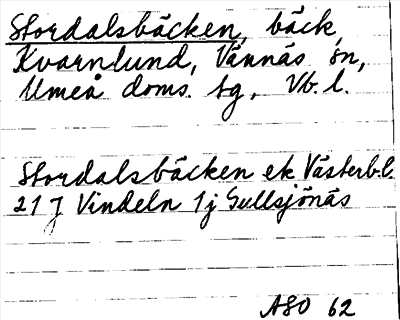 Stordalsbäcken, bäck,
Kvarnlund, Vännäs sn,
Umeå doms. tg, Vb. l.
Stordalsbäcken ek Västerb.l.
21 J Vindeln 1j Gullsjönäs
ASO 62